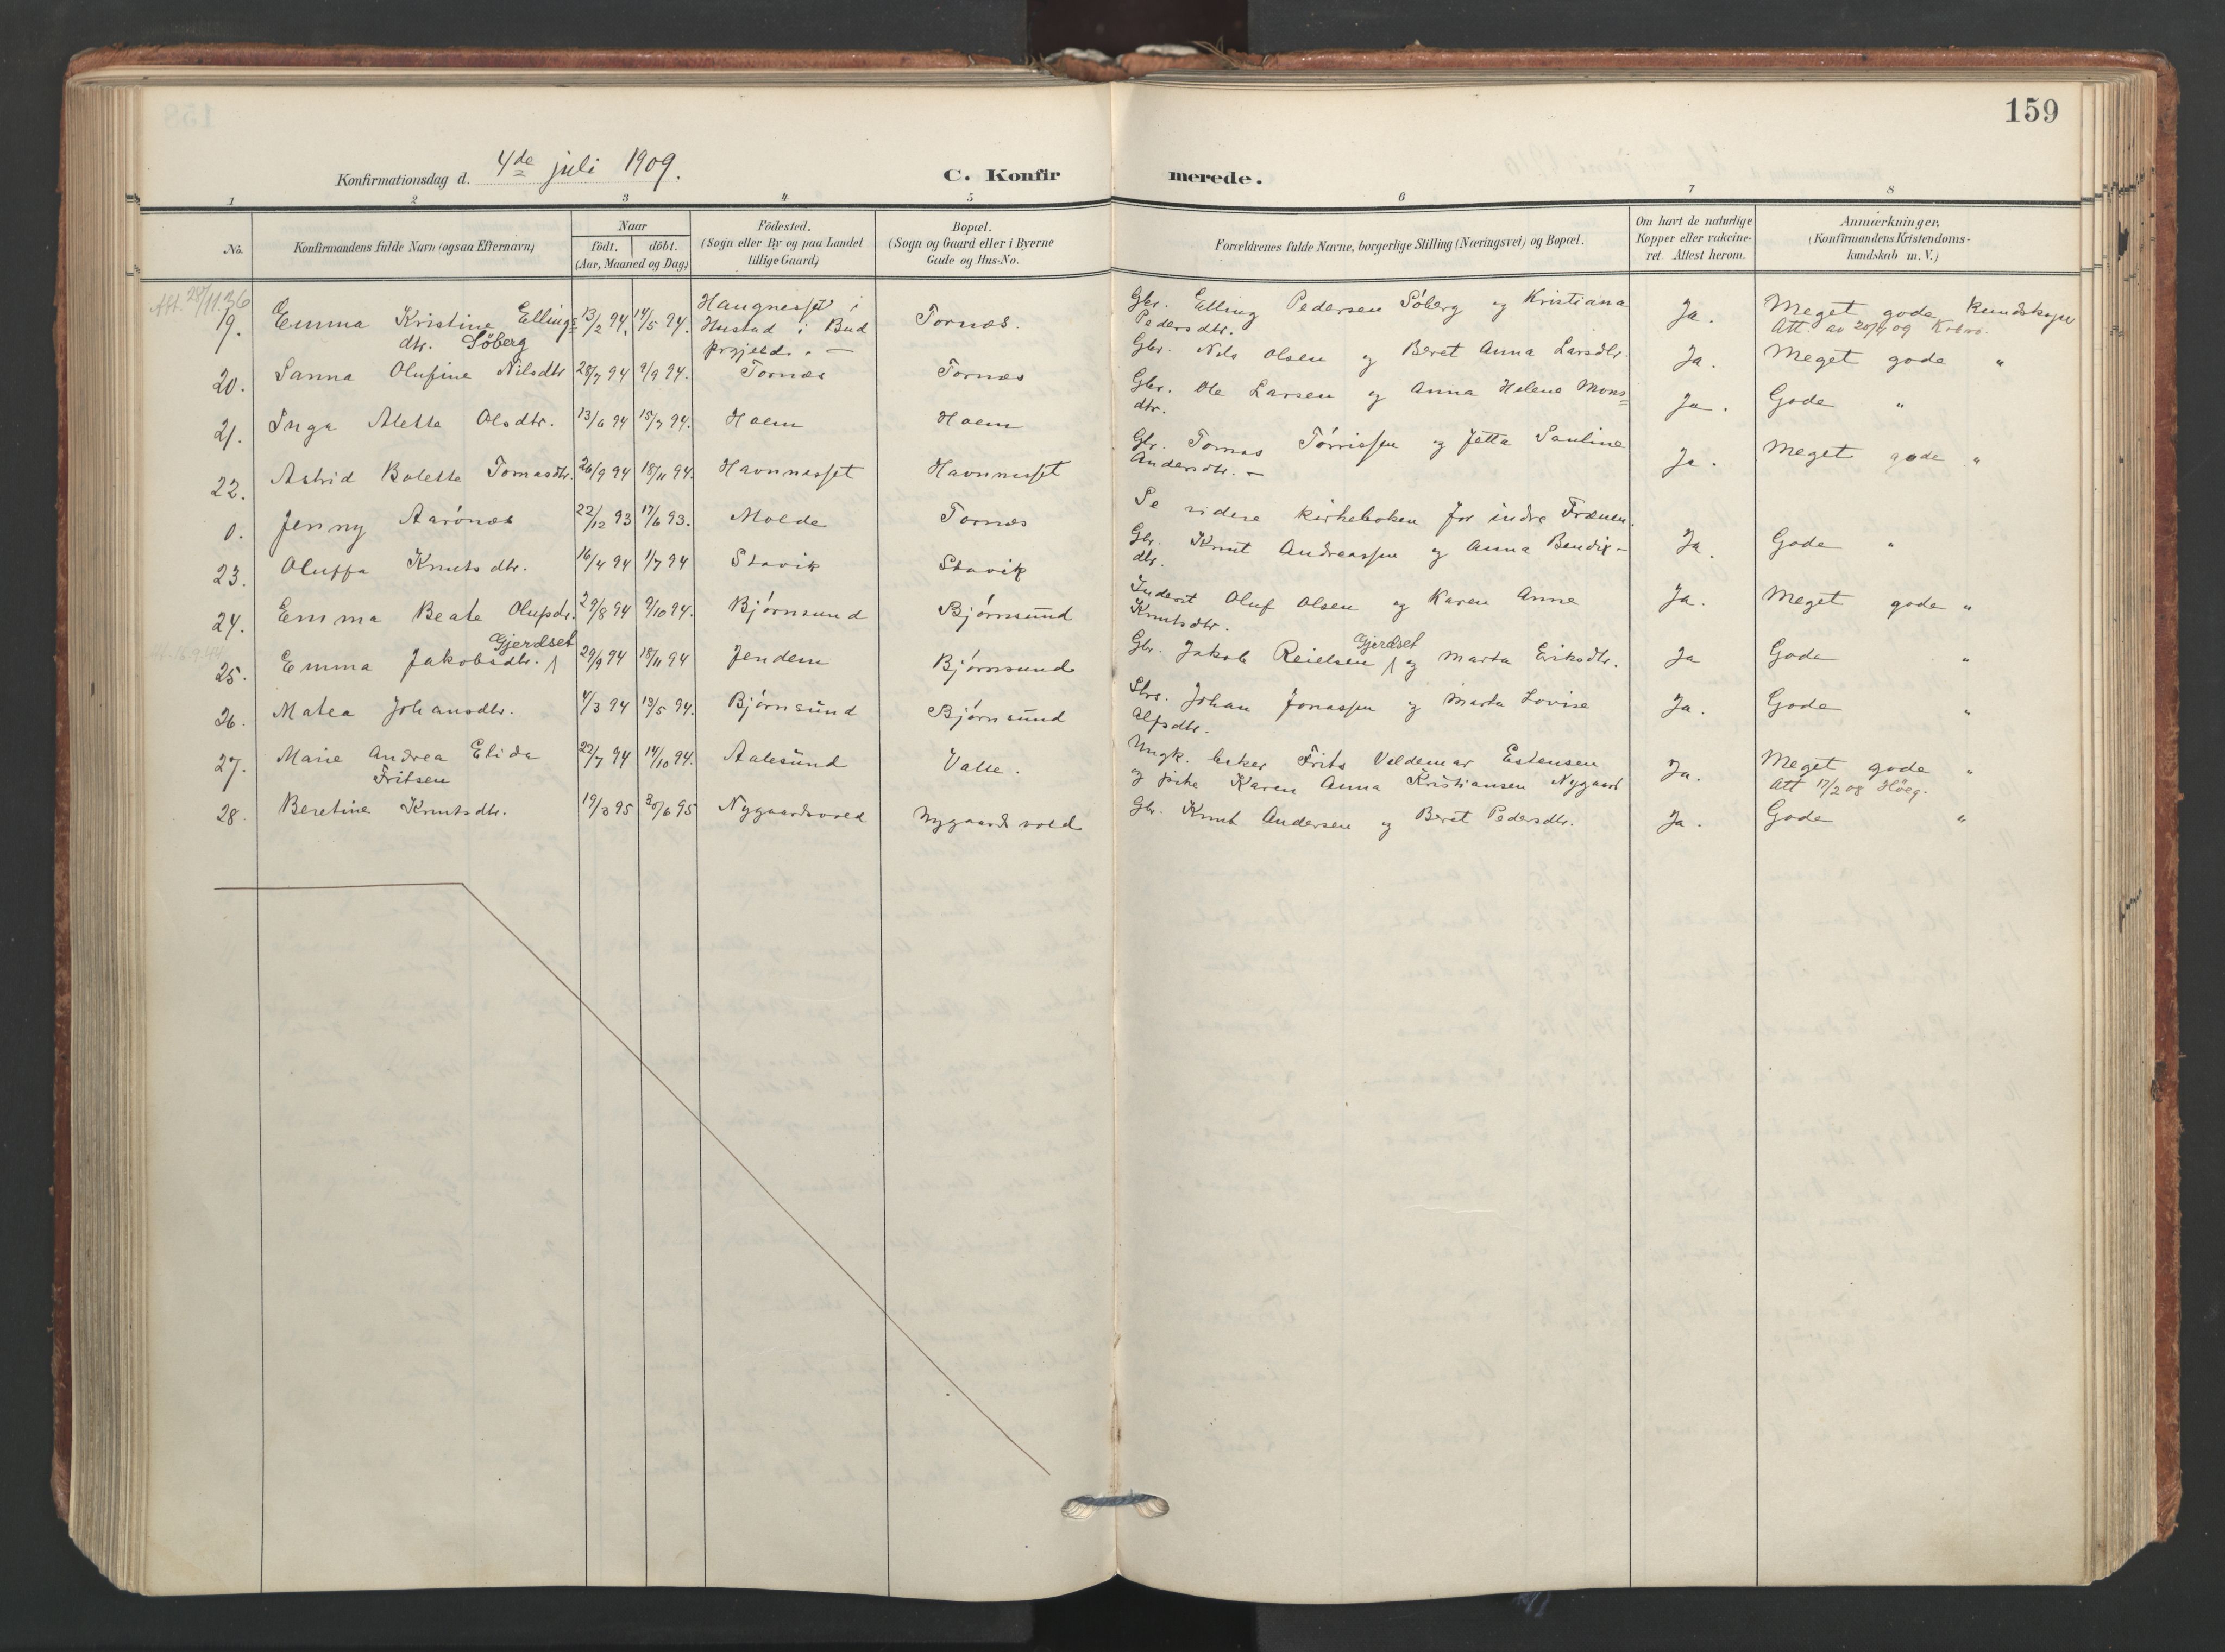 159
Konfirmationsdag d. 4de juli 1909. C. Konfir merede.
1 2 3 4 5 6 7 8
No. Konfirmandens fulde Navn (ogsaa Efternavn) Naar födt. döbt. (Aar, Maaned og Dag) Födested. (Sogn eller By og paa Landet tillige Gaard) Bopæl. (Sogn og Gaard eller i Byerne Gade og Hus-No. Forældrenes fulde Navne, borgerlige Stilling (Næringsvei) og Bopæl. Om havt de naturlige Kopper eller vakcineret. Attest herom. Anmærkninger, (Konfirmandens Kristendomskundskab m. V.)
Att. 28/11.36
19. Emma Kristine Ellings= 13/2 94. 14/5 94. Haugnesset i Hustad i Bud prgjeld. — Tornæs. Gbr. Elling Pedersen Söberg og Kristiana Ja. Meget gode kundskaper
dtr. Söberg Pedersdtr. Att. av 20/4 09
20. Sanna Olufine Nilsdtr 28/7 94 9/9 94. Tornæs Tornæs Gbr. Nils Olsen og Beret Anna Larsdtr. Ja. Meget gode "
21. Inga Alette Olsdtr. 13/6 94 15/7 94. Haem Haem Gbr. Ole Larsen og Anna Helene Mons= Ja. Gode "
dtr.
22. Astrid Bolette Tomasdtr. 26/9 94 18/11 94. Havnnesset Havnnesset Gbr. Tomas Tórrissen og Jetta Pauline Ja. Meget gode "
Andersdtr. —
0. Jenny Aarónæs 22/12 93 17/6 93. Molde Tornæs Se videre kirkeboken for indre Frænen.
23. Oluffa Knutsdtr. 16/4 94 1/7 94 Stavik Stavik Gbr. Knut Andreassen og Anna Bendix- Ja. Gode "
dtr.
24. Emma Beate Olufsdr. 29/8 94 9/10 94. Bjórnsund Bjórnsund Inderst Oluf Olsen og Karen Anne Ja. Meget gode "
Knutsdtr.
25. Emma Jakobsdtr. Gjerdset 29/9 94 18/11 94 Jendem Bjórnsund Gbr. Jakob Reielsen Gjerdset og Marta Eriksdtr. Ja Gode "
26. Matea Johansdtr. 4/3 94 13/5 94. Bjórnsund Bjórnsund Johan Jonassen og Marta Lovise Ja. Gode "
Alfsdtr.
27. Marie Andrea Elida 22/7 94 14/10 94. Aalesund Valle. Ungk. baker Frits Valdemar Estensen Ja. Meget gode "
Fritsen og pike Karen Anna Kristiansen Nygaard Att 17/2 08 Höeg.
28. Beretine Knutsdtr. 19/3 95 30/6 95 Nygaardsvold Nygaardsvold Gbr. Knut Andersen og Beret Pedersdtr. Ja. Gode "